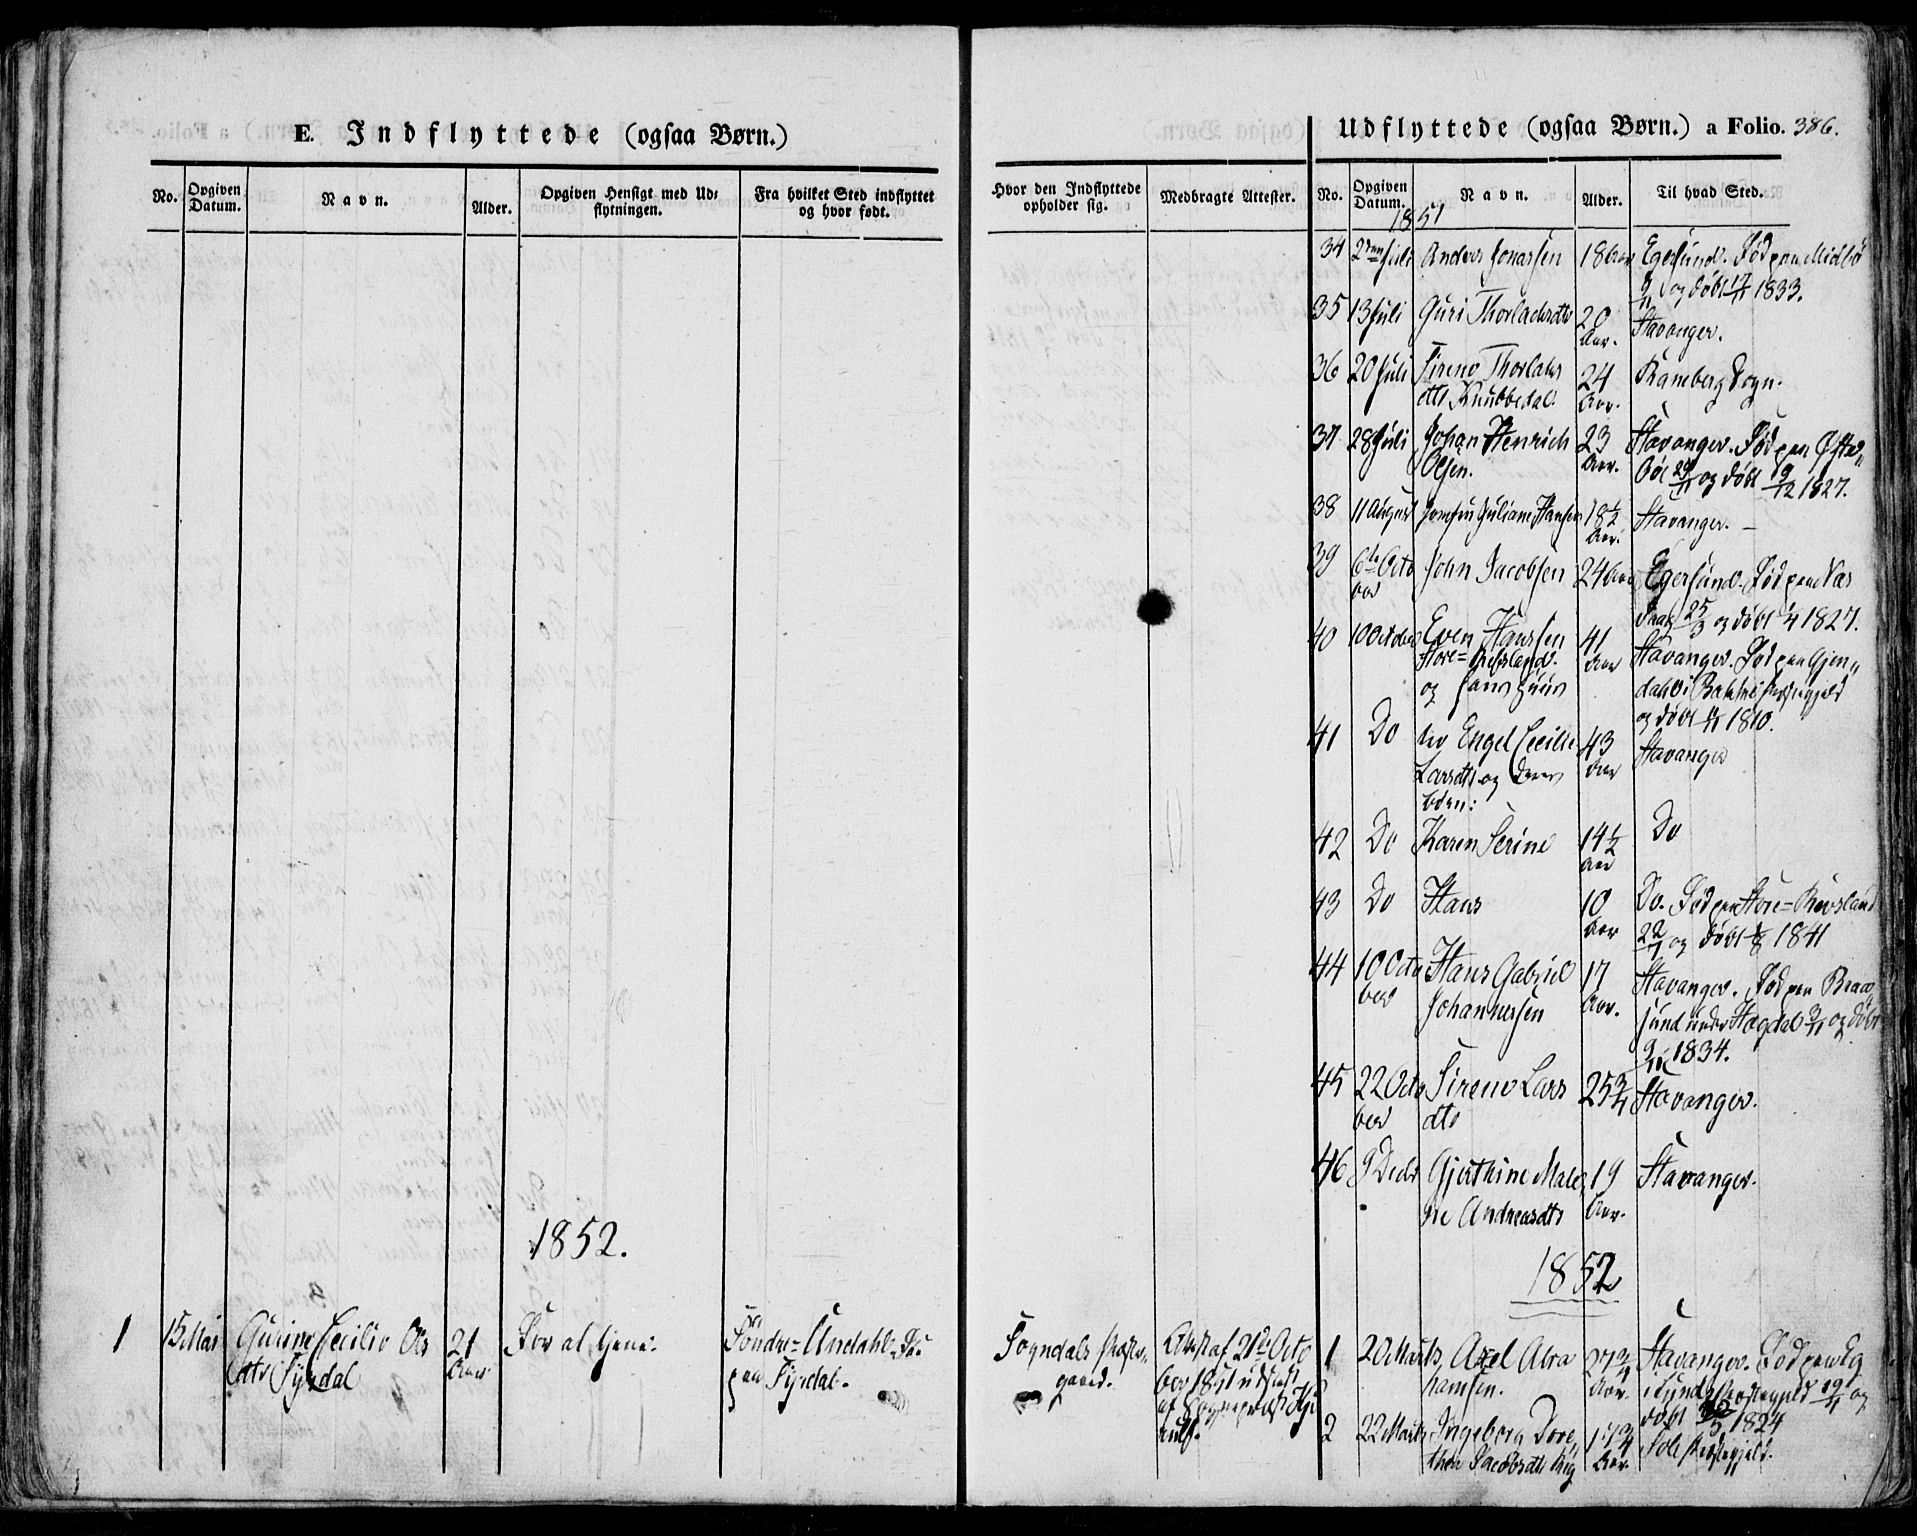 E. Indflyttede (ogsaa Børn.)
No.
Opgiven Datum.
Navn.
Alder.
Opgiven Hensigt med Ud-
flytningen.
Fra hvilket Sted indflyttet
og hvor født.
1852.
1
15 Mai
Gurine Cecilie Ols
dtr
21
Aar
For at tjene.
Fogndals Præste-
gaard.
Attest af 21de Octo
ber 1851 udstedt
Hvor den Indflyttede
opholder sig.
Medbragte Attester.
Udflyttede (ogsaa Børn.) a Folio. 386.
No.
Opgiven
Datum.
Navn.
Alder.
Til hvad Sted.
1851
34 2den Juli Anders Jonassen 18 Aar Egersund. Fød paa Midbø
9/11 og døbt 17/11 1833.
35 13 Juli Guri Thorlachsdtr 20
Aar. Stavanger.
36 20 Juli Sirene Thorlaks
dtr Knubbedal. 24
Aar. Ramberg Sogn.
37 28 Juli Johan Henrich
Olsen. 23
Aar. Stavanger. Fød paa
29/11 og døbt 9/12 1827.
38 11 August Jomfru Juliane Hansen 18½
Aar. Stavanger.
39 6te Octo
ber John Jacobsen 24 Aar Egersund. Fød paa
25/3 og døbt 1/4 1827.
40 10 October Even Hanssen
Store=Revsland.
og hans Huus 41
Aar Stavanger. Fød paa Gjen-
dal i Bakke Præstegjeld
og døbt 1810.
41 Do tro Engel Cecilie
Larsdtr og deres
børn: 43
Aar Stavanger
42 Do Karen Serine 14½
Aar Do
43 Do Hans 10
Aar Do. Fød paa Store=Revsland
og døbt 1841
44 10 Octo
ber Hans Gabriel
Johannessen 17
Aar. Stavanger. Fød paa
sund under Hægdal og døbt
1834.
45 22 Octo
ber Sirene Lars
dtr 25¾ Stavanger.
46 9 Decbr Gjerthine Male
ne Andreasdtr 19
Aar. Stavanger.
1852
1 20 Marts Axel Abra
hamsen. 27¾
Aar. Stavanger. Fød paa Eg
i Lunds Præstegjeld og
døbt 1824
2 22 Marts Ingeborg Dore,
thea Jacobsdtr 17¾
Aar. Præstegjeld.